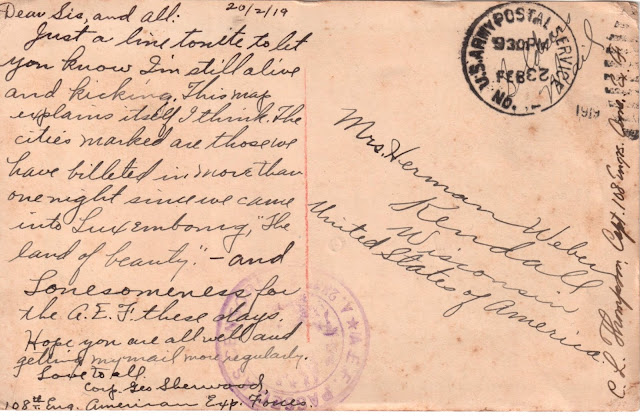 Dear Sis, and all:
20/2/19
Just a line tonite to let
you know I'm still alive
and kicking. This map
explains itself I think. The
cities marked are those we
have billeted in more than
one night since we came
into Luxembourg, "The
land of beauty." - and
Lonesomeness for
the A.E.F. these days.
Hope you are all well and
getting my mail more regularly.
Love to all,
Corp. Geo Sherwood,
108th Eng. American Exp. Forces.
U.S. ARMY POSTAL SERVICE
930PM
FEB 23
NO.
1919
Mrs. Herman Weber
Kendall
Wisconsin
United States of America
C L Thompson Capt. 108 Engs.
A.E.F.